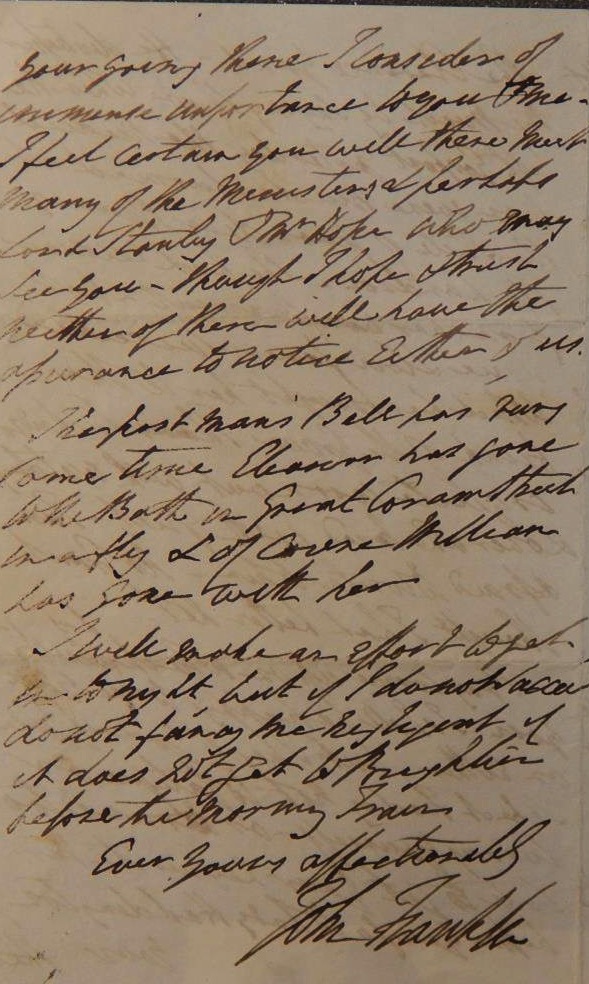 your going there I consider of
immense importance to you & me -
I feel certain you will there meet
many of the Ministers & perhaps
Lord Stanley & Mr Hope who may
see you - though I hope & trust
neither of them will have the
assurance to notice Either of us.
The post man's Bell has rung
some time Eleanor has gone
to the Bath in Great Coram Street
in a fly & of course William
has gone with her
I will make an effort to get
in to night but if I do not succeed
do not fancy me negligent if
it does not get to Brighton
before the morning Train
Ever yours affectionately
John Franklin